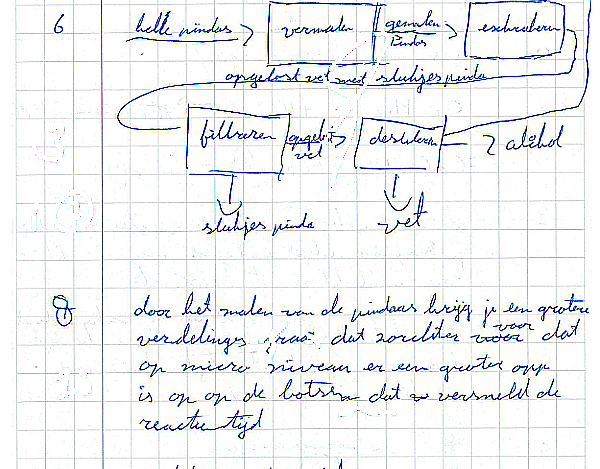 6 helle pindas vermalen gemalen Pindas extraheren
opgelost vet met stukjes pinda
filtreren opgelost vet destileren alcohol
stukjes pinda vet
8 door het malen van de pindaas krijg je een grotere
verdelings graat dat zorchter voor dat
op micro niveau er een groter opp
is op op de botsen dat versneld de
reactie tijd